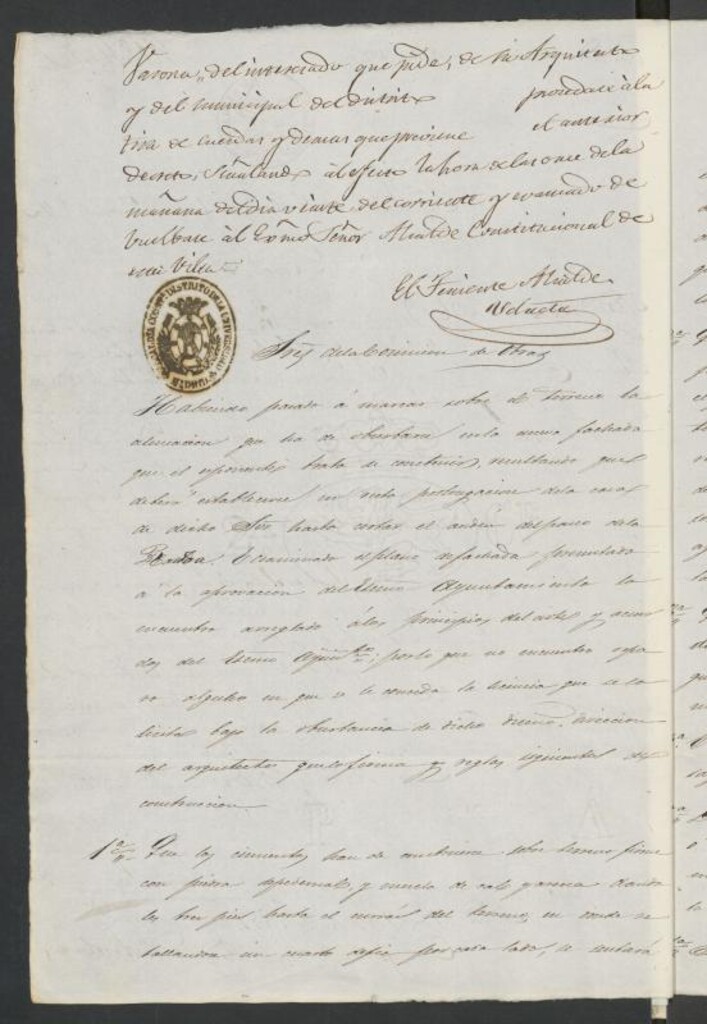 Varona, del interesado que pide, de su Arquitecto
y del municipal del distrito procedase à la
tira de cuerdas y demas que previene el anterior
decreto, señalando al efecto la hora de las once de la
mañana del dia viente del corriente y evacuado
vuelbase al Exmo Señor Alcalde Constitucional de
esta Villa
El Teniente Alcalde
Sres de la Comision de Obras
Habiendo pasado á marcar sobre el terreno la
alineacion que ha de observarse en la nueva fachada
que el esponente trata de construir, resultando que
deberá establecerse en recta prolongacion de la casa
de dicho Sor hasta cortar el del paseo de la
Ecsaminado el plano de fachada presentado
a la aprovacion del Escmo Ayuntamiento lo
encuentro arreglado á los principios del arte y acuer
dos del Escmo Ayunto; por lo que no encuentro repa
ro alguno en que se le conceda la licencia que so
licita bajo la observancia de dicho diseño, direccion
del arquitecto que lo firma y reglas siguientes de
construccion.
1a Que los cimientos han de construirse sobre terreno firme
con piedra de pedernal, y mezcla de cal y arena dando
les tres pies hasta el del terreno, en donde se
un cuarto de pie por cada lado, se sentará